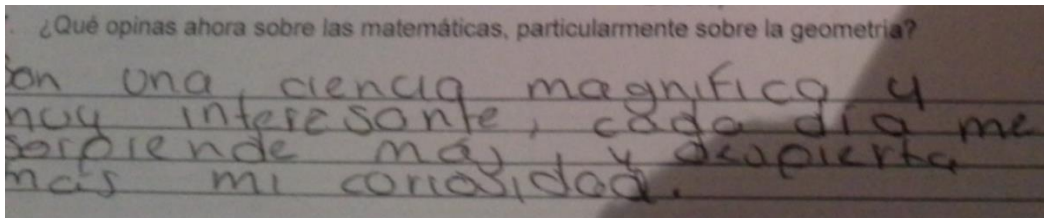 ¿Qué opinas ahora sobre las matemáticas, particularmente sobre la geometría?
son una ciencia magnifica y
muy interesante, cada día me
sorprende más, y despierta
más mi coriosidad.